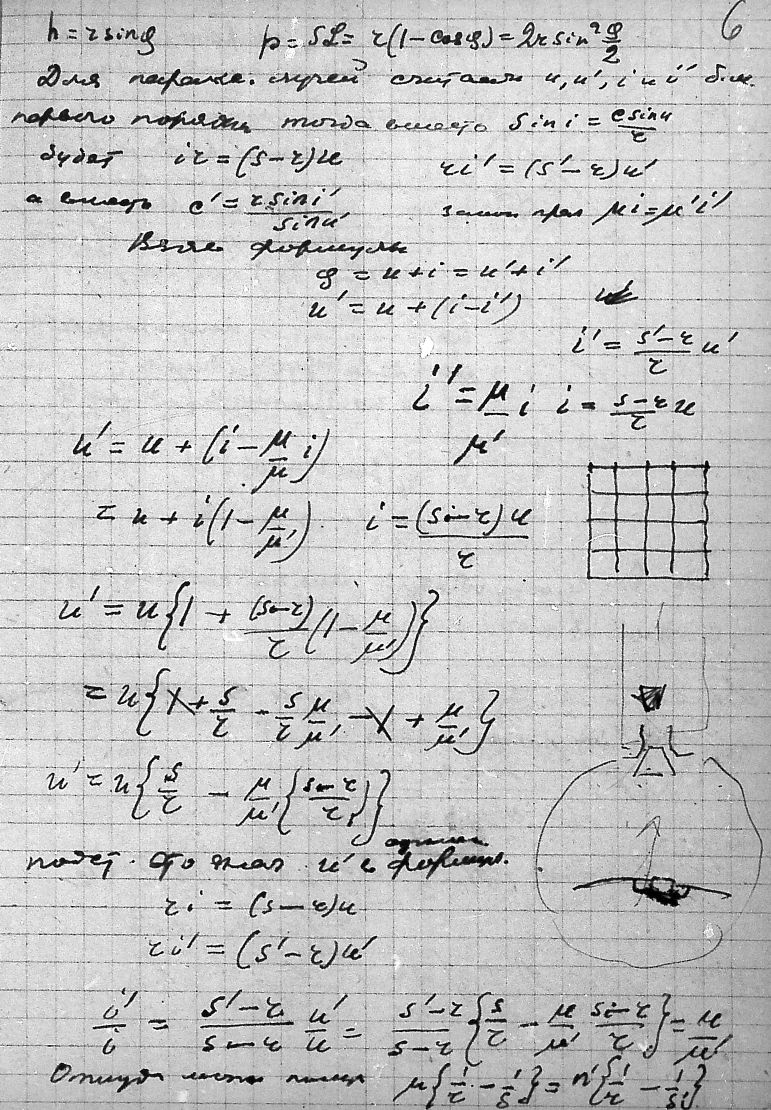 6
h = r sin φ p = SL = r(1 − cos φ) = 2r sin² φ/2
Для паракс. лучей считаем u, u', i и i' б.м.
первого порядка тогда вместо sin i = c sin u / r
будет ir = (s − r)u ri' = (s' − r)u'
а вместо c' = r sin i' / sin u' закон прел μi = μ'i'
формулы
φ = u + i = u' + i'
u' = u + (i − i')
i' = (s' − r)/r u'
i' = μ/μ' i i = (s − r)/r u
u' = u + (i − μ/μ i)
= u + i(1 − μ/μ') i = (s − r)u / r
u' = u{1 + (s − r)/r (1 − μ/μ')}
= u{1 + s/r − s/r μ/μ' − 1 + μ/μ'}
u' = u{s/r − μ/μ'{(s − r)/r}}
подст. это знач u' в формулы.
ri = (s − r)u
ri' = (s' − r)u'
i'/i = (s' − r)/(s − r) u'/u = (s' − r)/(s − r) {s/r − μ/μ' (s − r)/r} = μ/μ'
Откуда μ{1/r − 1/s} = n'{1/r − 1/s'}